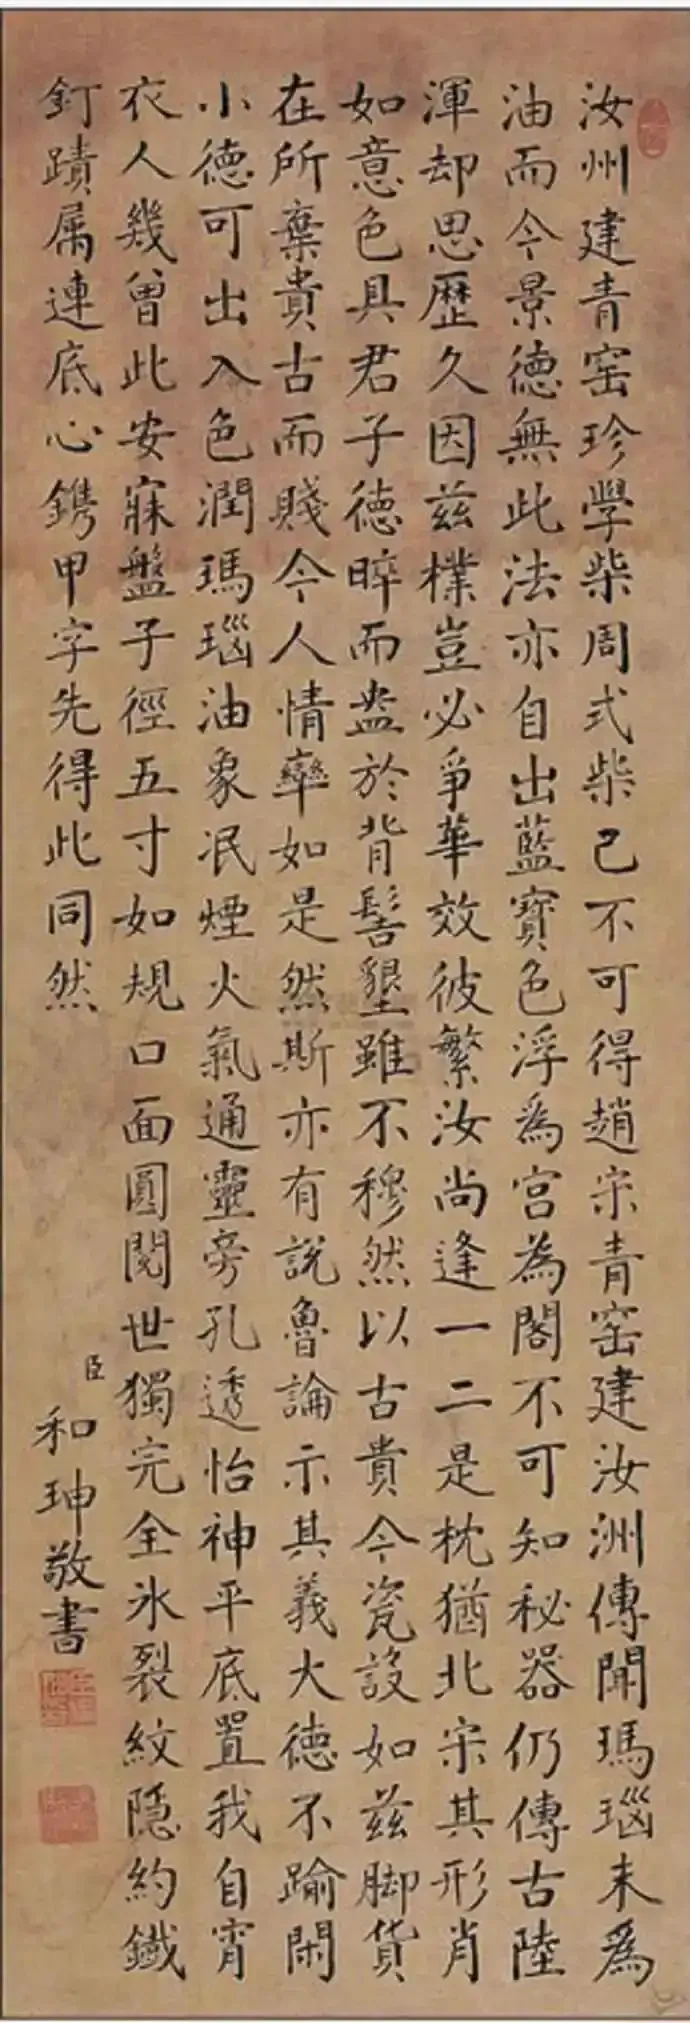 汝州建青窑珍學柴周式柴已不可得趙宋青窑建汝洲傳聞瑪瑙末爲
油而今景德無此法亦自出藍寶色浮爲宫為閣不可知秘器仍傳古陸
渾却思歷久因兹樸豈必爭華效彼繁汝尚逢一二是枕猶北宋其形肖
如意色具君子德晬而盎於背髻墾雖不穆然以古貴今瓷設如兹脚貨
在所棄貴古而賤今人情率如是然斯亦有説魯論示其義大德不踰閑
小德可出入色潤瑪瑙油象泯煙火氣通靈旁孔透怡神平底置我自宵
衣人幾曾此安寐盤子徑五寸如規口面圓閱世獨完全氷裂紋隱約鐵
釘蹟属連底心鐫甲字先得此同然
臣和珅敬書